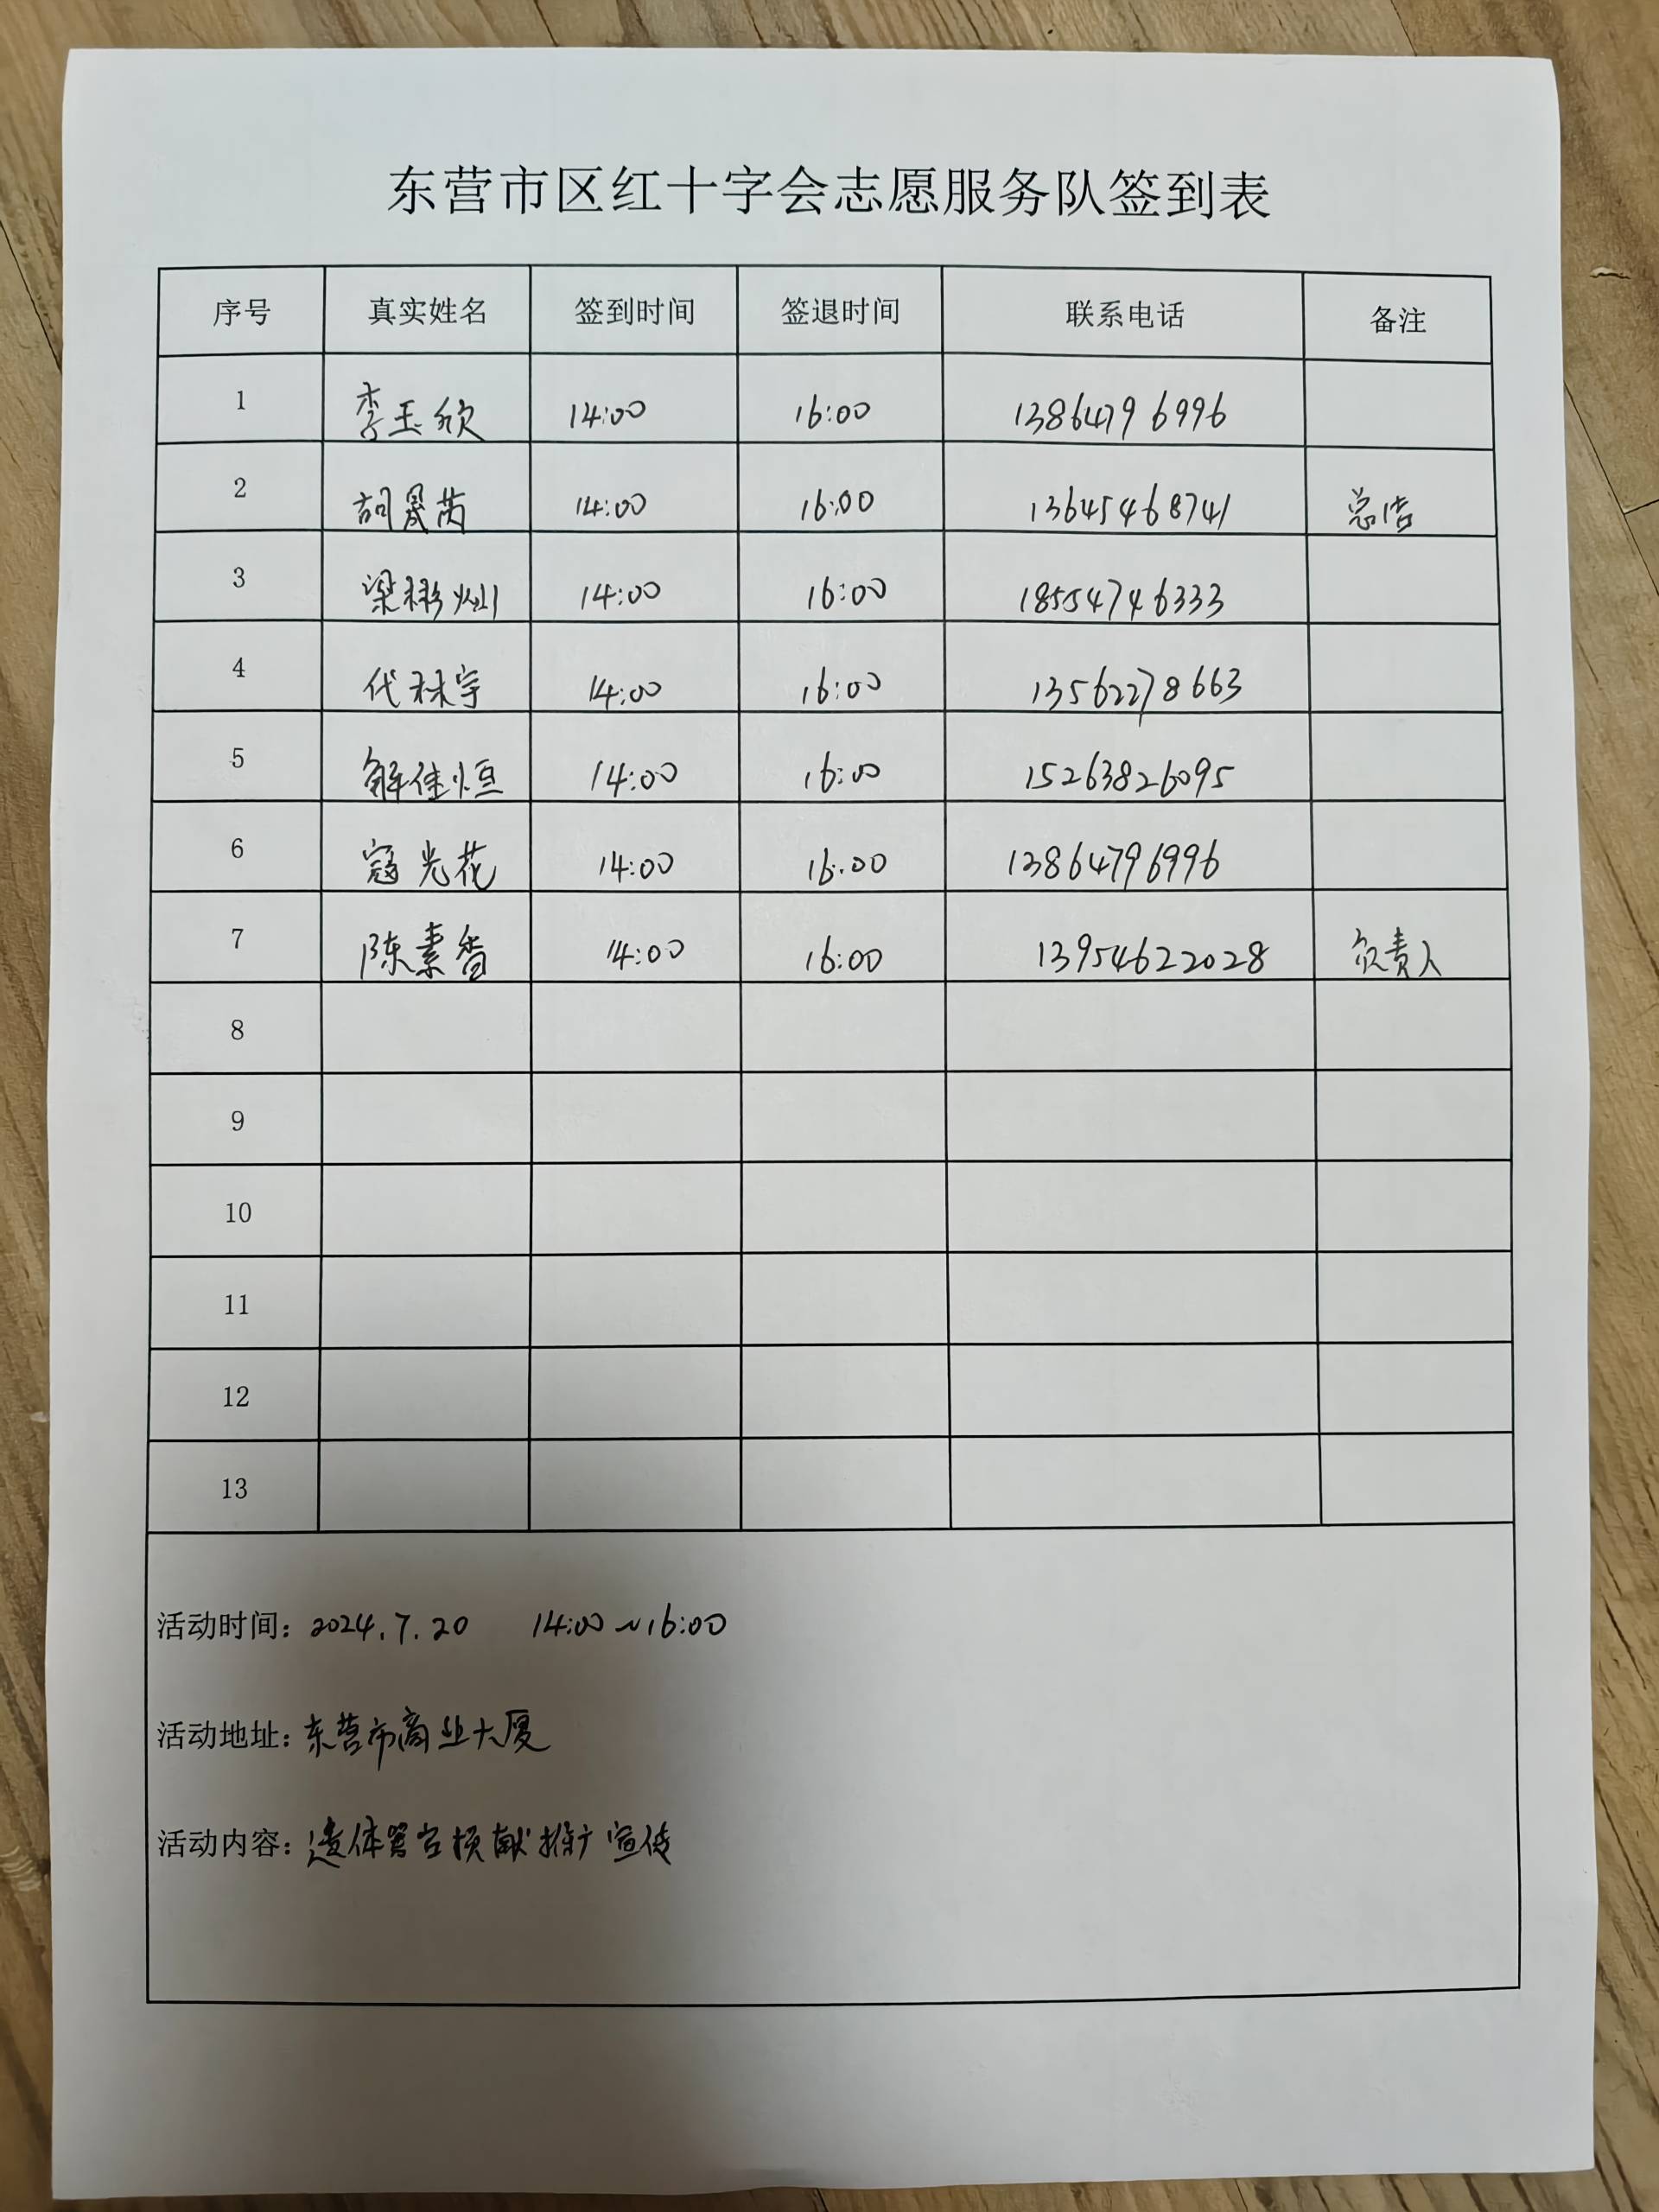 东营市区红十字会志愿服务队签到表
序号 真实姓名 签到时间 签退时间 联系电话 备注
1 李玉欣 14:00 16:00 13864796996
2 胡晟茜 14:00 16:00 13645468741 总结
3 梁彬灿 14:00 16:00 18554746333
4 代林宇 14:00 16:00 13562278663
5 解佳恒 14:00 16:00 15263826095
6 寇光花 14:00 16:00 13864796996
7 陈素香 14:00 16:00 13954622028 负责人
8
9
10
11
12
13
活动时间：2024.7.20 14:00~16:00
活动地址：东营市商业大厦
活动内容：遗体器官捐献推广宣传